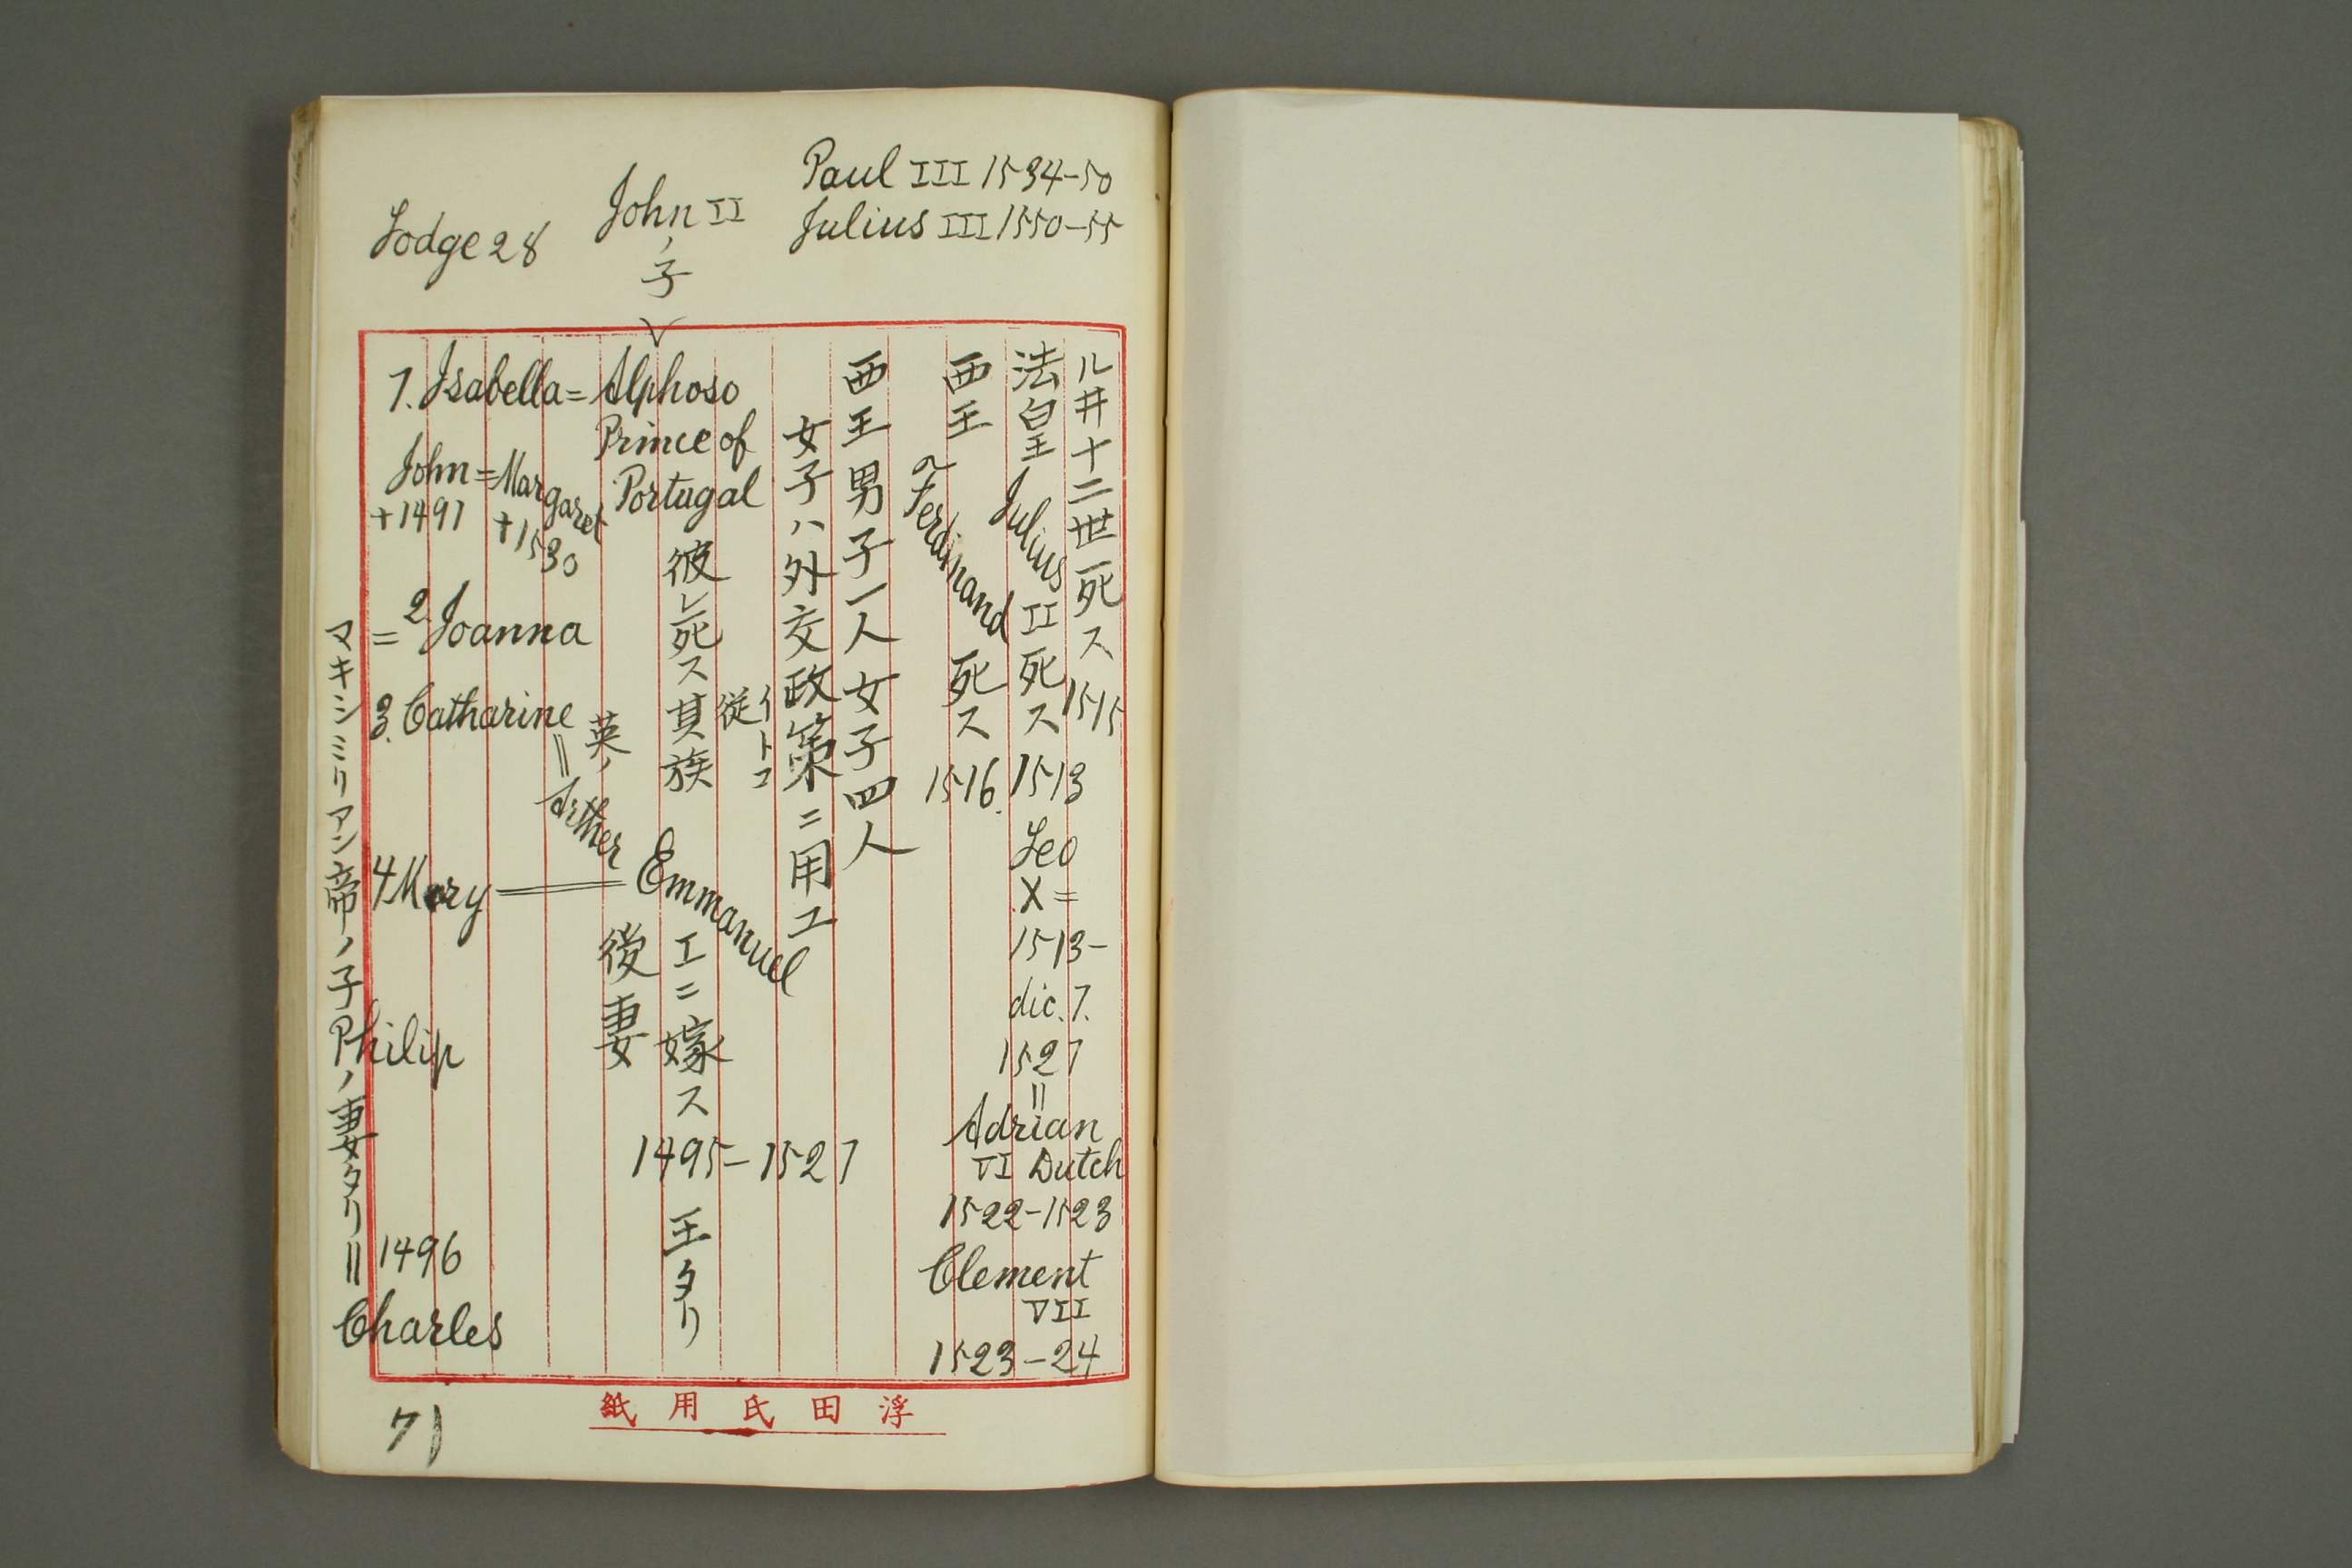 Paul III 1534-50
Julius III 1550-55
John II
ノ子
Lodge 28
ル井十二世死ス 1515
法皇 Julius II 死ス 1513 Leo X = 1513-
dic. 7. 1527
=
Adrian VI Dutch
1522-1523
Clement VII
1523-24
西王 Ferdinand 死ス 1516.
西王男子一人女子四人
女子ハ外交政策ニ用ユ
1. Isabella = Alphoso
Prince of
Portugal
彼レ死ス其族
従
イトコ
Emmanuel
エニ嫁ス
1495-1527
王タリ
John = Margaret
+1497 +1530
= 2 Joanna
3. Catharine
=
英ノ
4 Mary = Emmanuel
後妻
マキシミリアン帝ノ子 Philip ノ妻タリ = 1496
Charles
71
浮田氏用紙